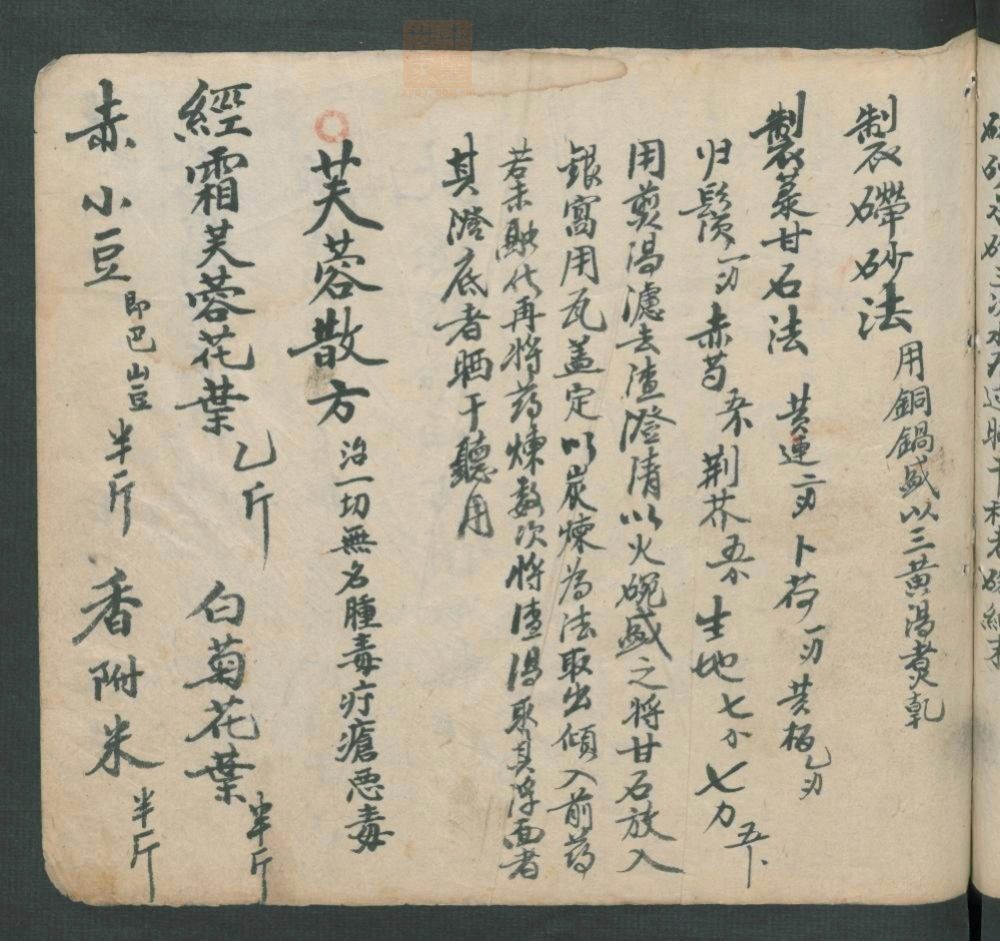 製硼砂法 用銅鍋盛以三黃湯煑乾
製蒸甘石法 黄連二刃 卜荷一刃 黄栢乙刃
归鬚一刃 赤芍五分 荆芥五分 生地七分 七力五卜
用煎湯濾去渣澄清以火碗盛之将甘石放入
銀窩用瓦盖定以炭煉為法取出傾入前药
若未融化再将药煉数次将渣湯取其浮面者
其澄底者晒干聽用
芙蓉散方 治一切無名腫毒疔瘡恶毒
經霜芙蓉花葉乙斤 白菊花葉半斤
赤小豆即巴山豆半斤 香附米半斤